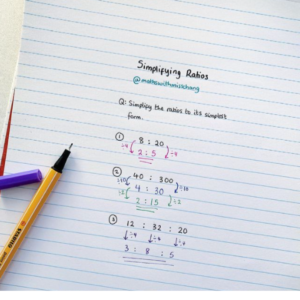 Simplifying Ratios
@mathswithmisschang
Q: Simplify the ratios to its simplest
form.
①
8 : 20
÷4 ÷4
2 : 5
②
40 : 300
÷10 ÷10
4 : 30
÷2 ÷2
2 : 15
③
12 : 32 : 20
÷4 ÷4 ÷4
3 : 8 : 5